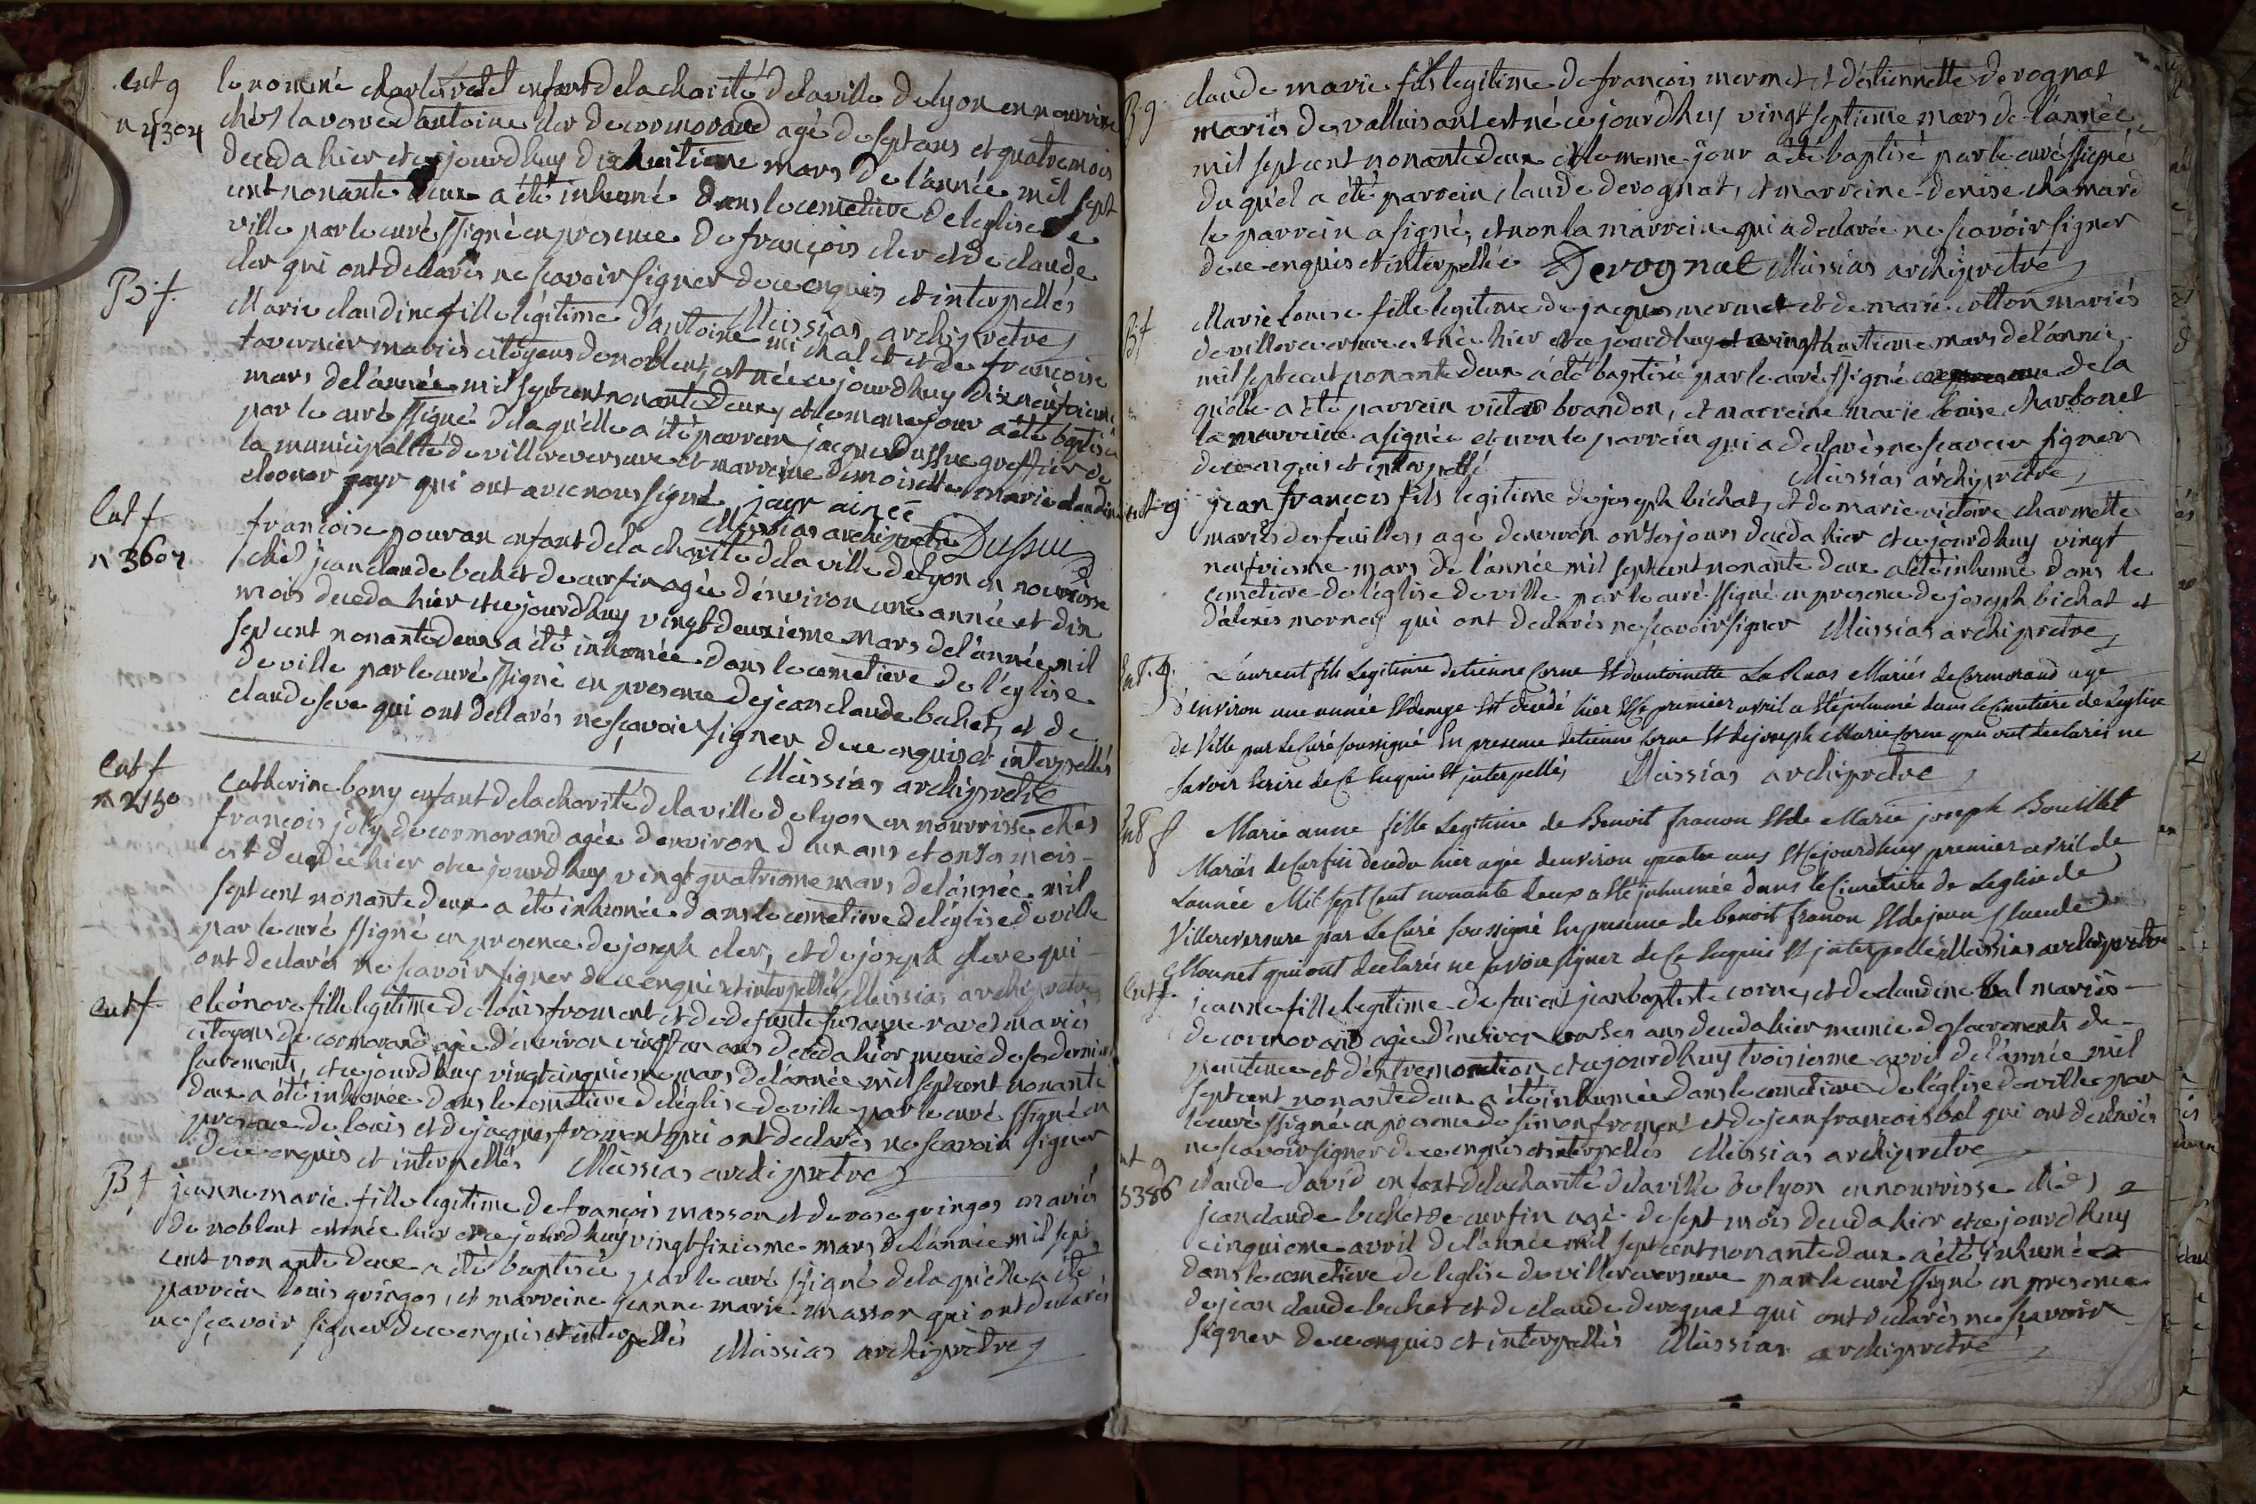 Ent g
n 4304
le nommé charles enfant de la charité de la ville de lyon en nourrice
chés la veuve d'antoine cler de cormorand agé de sept ans et quatre mois
deceda hier et ce jourdhuy dixhuitieme mars de l'année mil sept
cent nonante deux a été inhumé dans le cemetiere de l'eglise de
ville par le curé ssigné en presence de françois cler et de claude
cler qui ont declarés ne scavoir signer de ce enquis et interpellés
Missias archipretre
B f.
Marie claudine fille légitime d'antoine michalet et de françoise
tavernier mariés citoyens de noblent, est née ce jourdhuy dixneufvieme
mars de l'année mil sept cent nonante deux, et le meme jour a été baptisée
par le curé ssigné de laquélle a été parrein jacque Dussuc greffier de
la municipalité de villereversure et marreine demoiselle marie claudine
eleonor jayr qui ont avec nous signé jayr ainée
Missias archipretre Dussuc
Ent f
n 3604
françoise pouvan enfant de la charité de la ville de lyon en nourrisse
chés jean claude buhet de curfin agée d'énviron une année et dix
mois deceda hiér et ce jourdhuy vingt deuxieme mars de l'année mil
sept cent nonante deux a été inhumée dans le cemetiere de l'église
de ville par le curé ssigné en presence de jean claude buhet, et de
claude seve qui ont declarés ne scavoir signer de ce enquis et interpellés
Missias archipretre
Ent f
n 2130
Catherine bony enfant de la charité de la ville de lyon en nourrisse chés
françois joly de cormorand agée d'environ deux ans et onze mois
est décedée hier et ce jourdhuy vingt quatrieme mars de l'année mil
sept cent nonante deux a été inhumée dans le cemetiere de l'église de ville
par le curé ssigné en presence de joseph cler, et de joseph seve qui
ont declarés ne scavoir signer de ce enquis et interpellés Missias archipretre
Ent f
eleónore fille legitime de louis froment et de defunte susanne ravet mariés
citoyens de cormorand agée d'énviron vingt un ans deceda hier munie de ses derniers
sacrements, et ce jourdhuy vingtcinquieme mars de l'année mil sept cent nonante
deux a été inhumée dans le cemetiere de l'église de ville par le curé ssigné en
presence de louis et de jacques froment qui ont declarés ne scavoir signer
de ce enquis et interpellés Missias archipretre
B f
jeanne marie fille legitime de françois masson et de rose gringos mariés
de noblent est née hier et ce jourdhuy vingt sixieme mars de l'année mil sept
cent nonante deux a été baptisée par le curé ssigné de laquélle a été
parrein louis gringos, et marreine jeanne marie masson qui ont declarés
ne sçavoir signer de ce enquis et interpellés Missias archipretre
B g
claude marie fils legitime de françois mermet et d'étiennette derognat
mariés de valluisant est né ce jourdhuy vingt septieme mars de l'année
mil sept cent nonante deux et le meme jour a été baptisé par le curé ssigné
duquél a été parrein claude derognat, et marreine denise chamard
le parrein a signé, et non la marreine qui a declarée ne scavoir signer
de ce enquis et interpellée Derognat Missias archipretre
B f
Marie louise fille legitime de jacques mermet et de marie cotton mariés
de villereversure est née hier et ce jourdhuy vingt huitieme mars de l'année
mil sept cent nonante deux a été baptisée par le curé ssigné de la
quélle a été parrein victor brandon, et marreine marie louise charbonet
la marreine a signée et non le parrein qui a declarés ne scavoir signer
de ce enquis et interpellé
Missias archipretre
ent g
jean françois fils legitime de joseph bichat, et de marie victoire charmette
mariés des feuilles, agé d'environ onze jours deceda hier et ce jourdhuy vingt
neufvieme mars de l'année mil sept cent nonante deux a été inhumé dans le
cemetiere de l'église de ville par le curé ssigné en presence de joseph bichat et
d'alexis mornay qui ont declarés ne scavoir signer Missias archipretre
Ent. g.
Laurent fils Legitime detienne Corne Et dantoinette La Ruas Mariés de Cormorand age
d'environ une année Et demye Est decedé hier Et Ce premier avril a Eté inhumé dans le Cimetiere de L'eglise
de Ville par Le Curé soussigné En presence detienne Corne Et de joseph Marie Corne qui ont declarés ne
savoir Ecrire de Ce Enquis Et interpellés Missias archipretre
Ent f
Marie anne fille Legitime de Benoit franon Et de Marie joseph Bouillet
Mariés de Curfin deceda hier agée denviron quatre ans Et Cejourdhuy premier avril de
L'année Mil sept Cent nonante deux a Eté inhumée dans le Cimetiere de Leglise de
Villereversure par Le Curé soussigné En presence de benoit franon Et de jean Claude
Mounet qui ont declarés ne savoir signer de Ce Enquis Et interpellés Missias archipretre
Ent f.
jeanne fille legitime de furent jean baptiste corne, et de claudine bal mariés
de cormorand agée d'énviron onze ans deceda hier munie des sacrements de
penitence et d'éxtremonction, et ce jourdhuy troisieme avril de l'année mil
sept cent nonante deux a été inhumée dans le cemetiere de l'église de ville par
le curé ssigné en presence de simon froment et de jean françois bal qui ont declarés
ne scavoir signer de ce enquis et interpellés Missias archipretre
nt g
5386
claude david enfant de la charité de la ville de lyon en nourrisse chés
jean claude buhet de curfin agé de sept mois deceda hier et ce jourdhuy
cinquieme avril de l'année mil sept cent nonante deux a été inhumé
dans le cemetiere de l'eglise de villereversure par le curé ssigné en presence
de jean claude buhet et de claude derognat qui ont declarés ne scavoir
signer de ce enquis et interpellés Missias archipretre